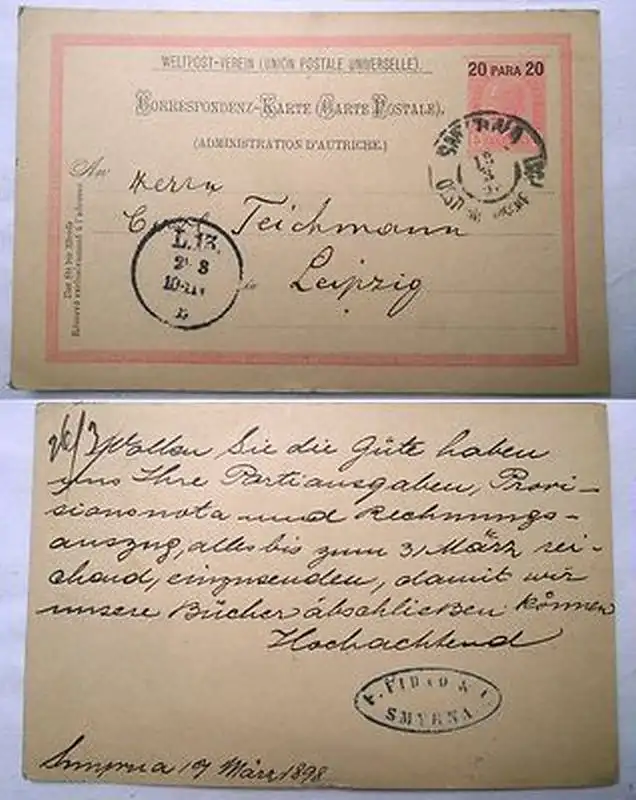 WELTPOST-VEREIN (UNION POSTALE UNIVERSELLE).
20 PARA 20
CORRESPONDENZ-KARTE (CARTE POSTALE).
(ADMINISTRATION D'AUTRICHE.)
An
Herrn
Teichmann
in Leipzig
L.13.
26/3 Wollen Sie die Güte haben
uns Ihre Partiausgaben, Provi-
sionsnota und Rechnungs-
auszug, alles bis zum 31 März rei-
chend, einzusenden, damit wir
unsere Bücher abschließen können
Hochachtend
SMYRNA
Smyrna 19 März 1898